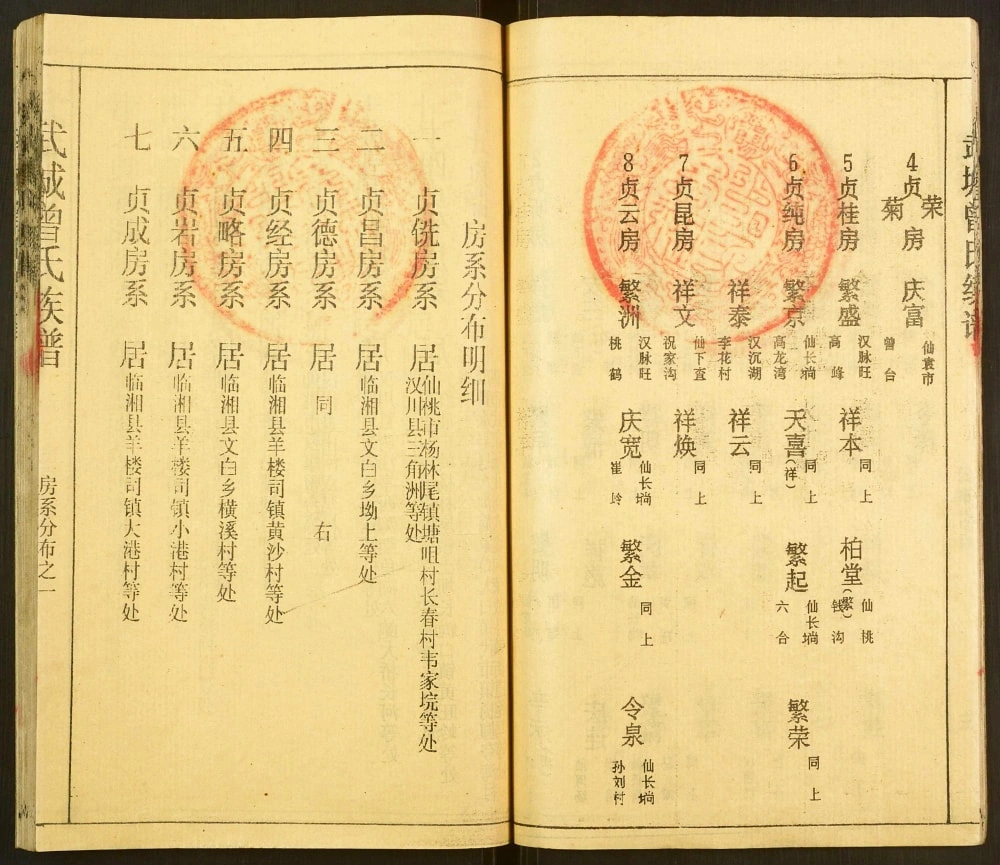 4 贞荣菊房 庆富 仙袁市曾台
5 贞桂房 繁盛 汉脉旺高峰 祥本 同上 柏堂(繁) 仙桃钱沟
6 贞纯房 繁京 仙长埫高龙湾 天喜(祥) 同上 繁起 仙长埫六合 繁荣 同上
祥泰 汉沉湖李花村 祥云 同上
7 贞昆房 祥文 仙下查祝家沟 祥焕 同上
8 贞云房 繁洲 汉脉旺桃鹤 庆宽 仙长埫崔岭 繁金 同上 令泉 仙长埫孙刘村
房系分布明细
一 贞铣房系 居仙桃市杨林尾镇塘咀村长春村韦家垸等处
汉川县三角洲等处
二 贞昌房系 居临湘县文白乡坳上等处
三 贞德房系 居同右
四 贞经房系 居临湘县羊楼司镇黄沙村等处
五 贞略房系 居临湘县文白乡横溪村等处
六 贞岩房系 居临湘县羊楼司镇小港村等处
七 贞成房系 居临湘县羊楼司镇大港村等处
武城曾氏族谱
房系分布之一